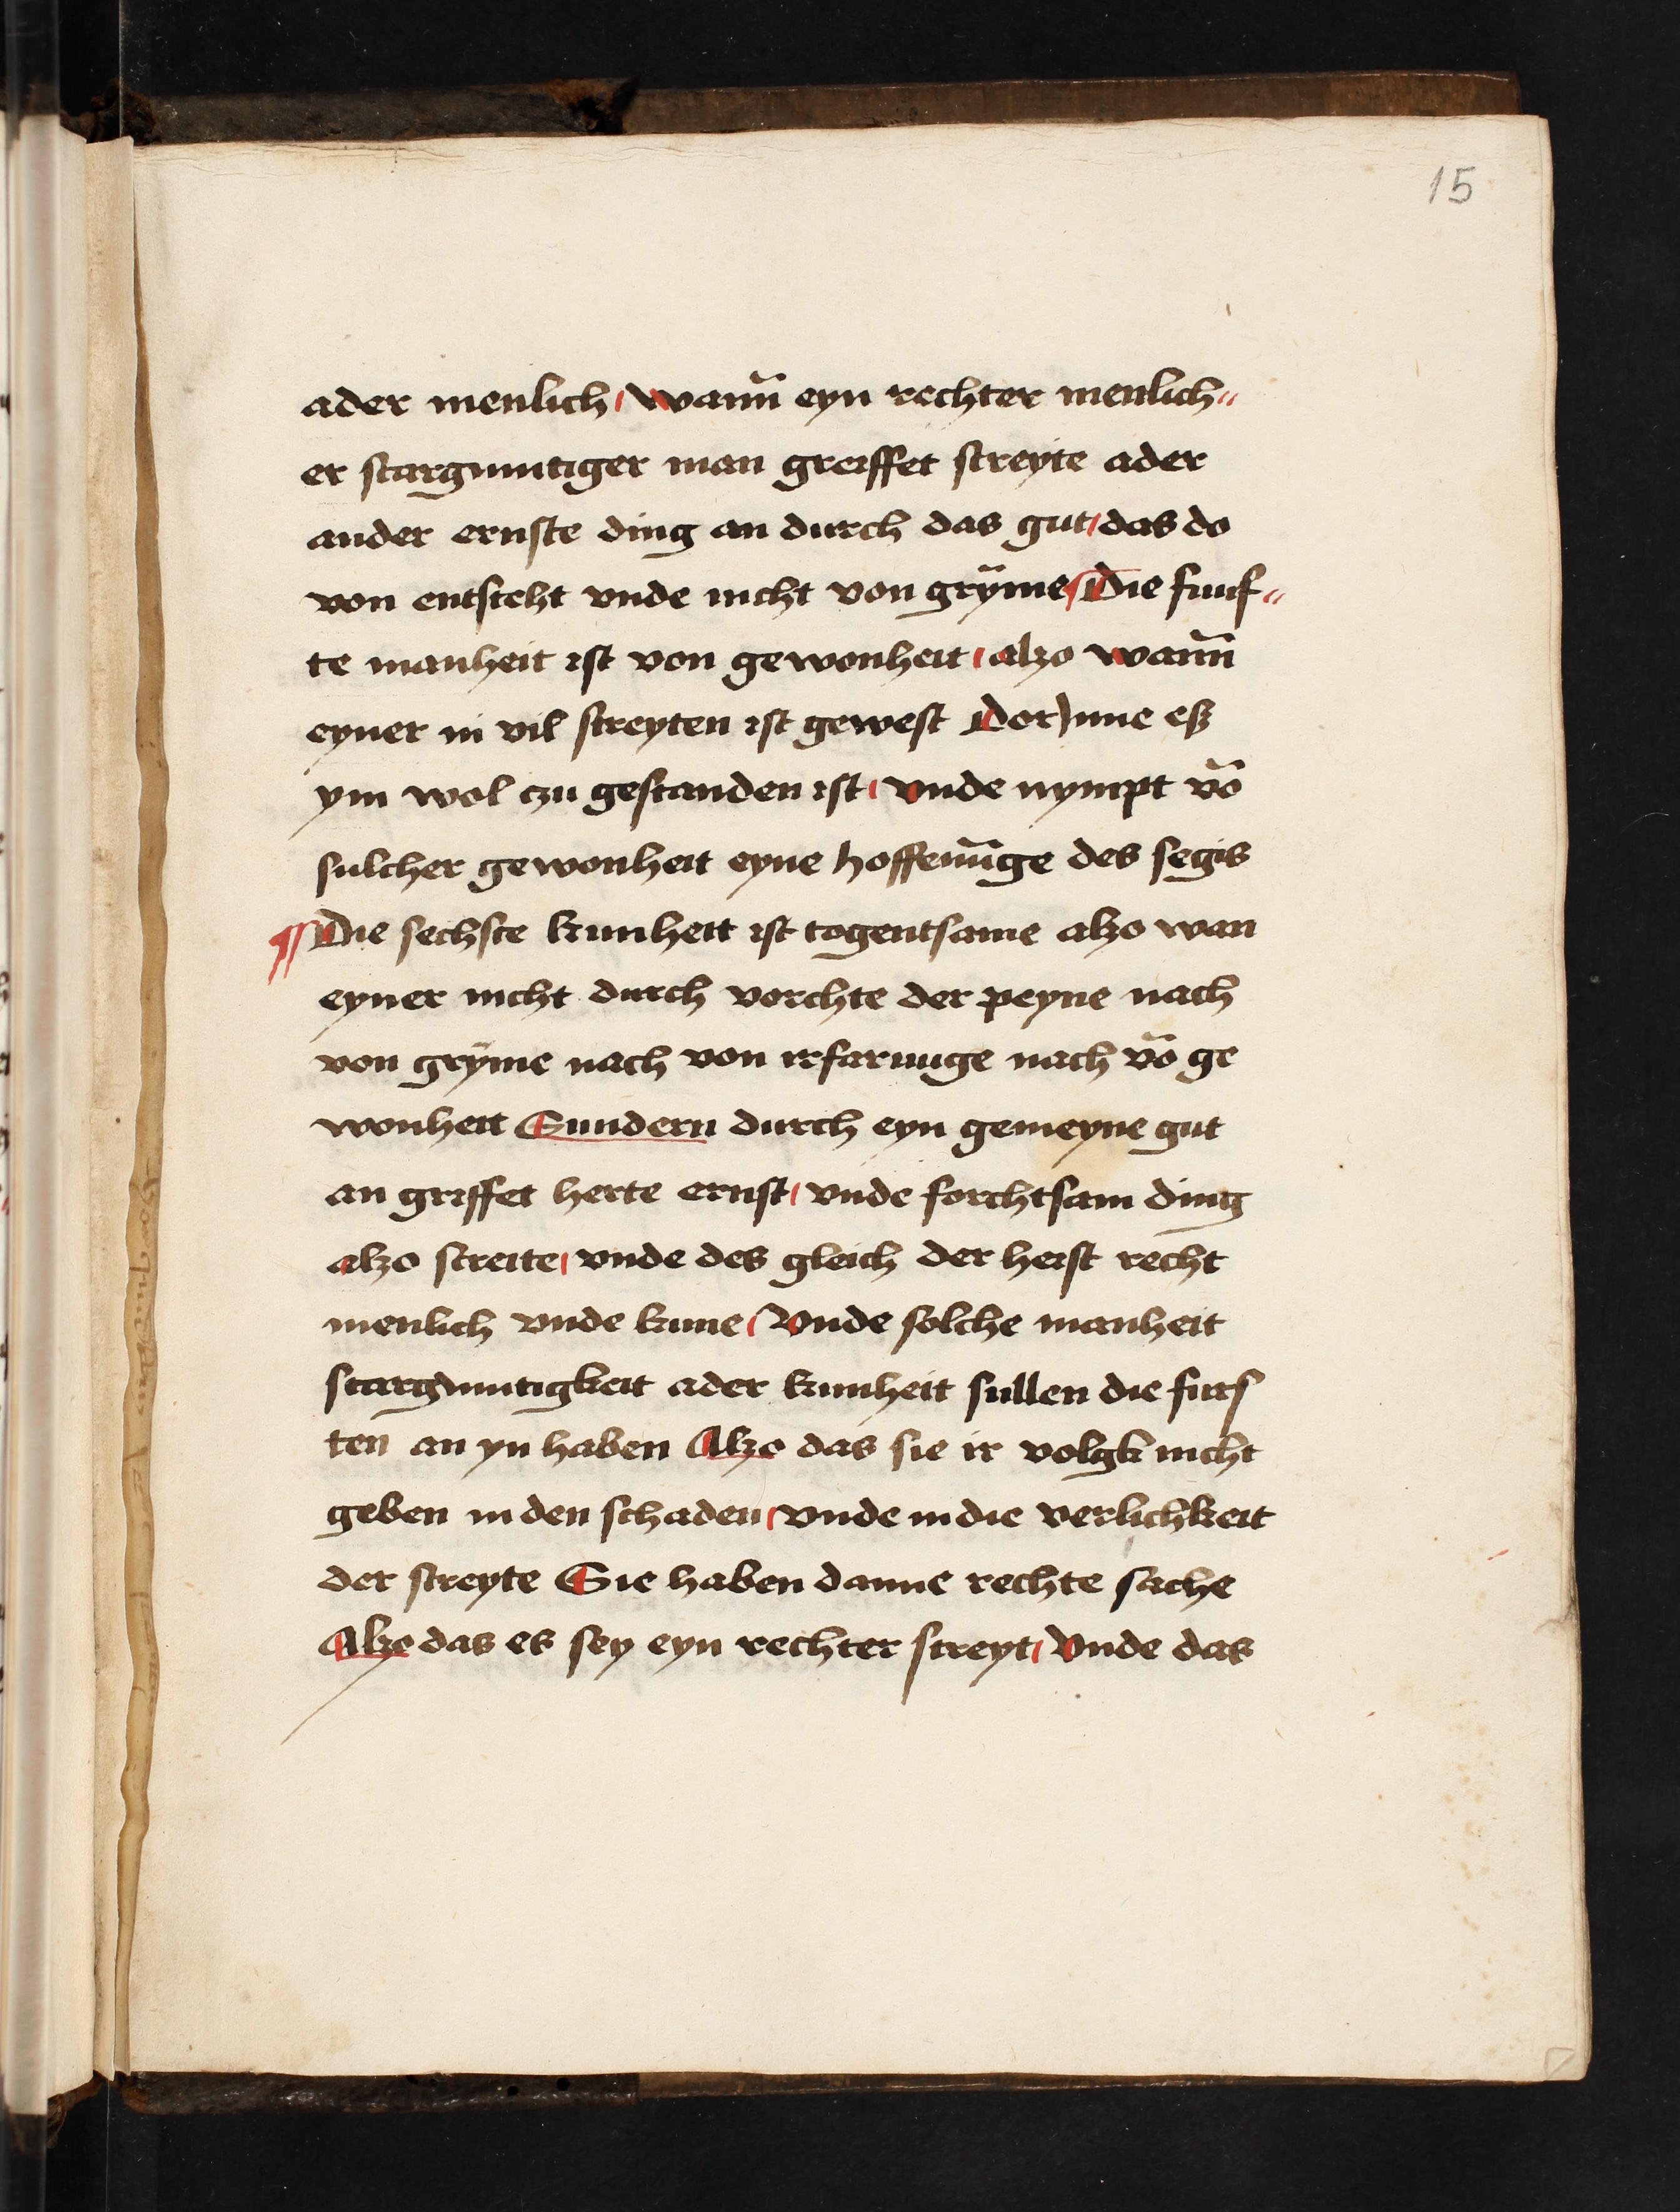 15
ader menlich / wann̄ eyn rechter menlich=
er stargmutiger man greiffet streyte ader
ander ernste ding an durch das gut / das do
von entsteht vnde nicht von grÿme / Die funf=
te manheit ist von gewonheit / alzo wann̄
eyner in vil streyten ist gewest Dor jnne eß
ym wol czu gestanden ist / vnde nympt vō
sulcher gewonheit eyne hoffenūge des segis
¶ Die sechste kunheit ist togentsame alzo wan
eyner nicht durch vorchte der peyne nach
von grÿme nach von irfarunge nach vō ge
wonheit Sundern durch eyn gemeyne gut
an griffet herte ernst / vnde forchtsam ding
alzo streite / vnde des gleich der heist recht
menlich vnde kune / Vnde solche manheit
starg mutigkeit ader kunheit sullen die furs
ten an yn haben Alzo das sie ir volgk nicht
geben in den schaden / vnde in die verlichkeit
der streyte Sie haben danne rechte sache
Alzo das es sey eyn rechter streyt / Vnde das